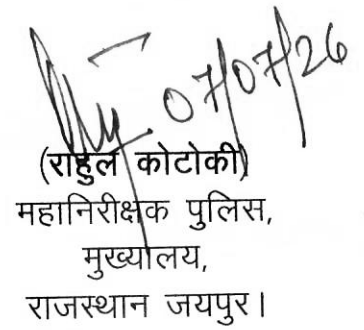 07/07/26
(राहुल कोटोकी)
महानिरीक्षक पुलिस,
मुख्यालय,
राजस्थान जयपुर।